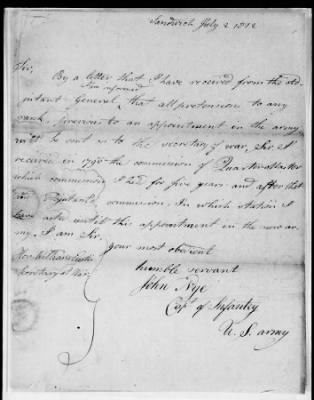 Sandwich July 2 1812
Sir,
By a letter that I have received from the Ad-
I am informed
jutant General, that all pretension to any
rank, previous to an appointment in the army
must be sent in to the secretary of war, Sir I
received in 1798 the commission of Quartermaster
which commission I had for five years and after that
an Adjutants commission. In which Station I
have acted untill this appointment in the new ar-
my I am Sir,
your most obedient
humble servant
John Nye
Capt of Infantry
U. S. army
Secretary of War